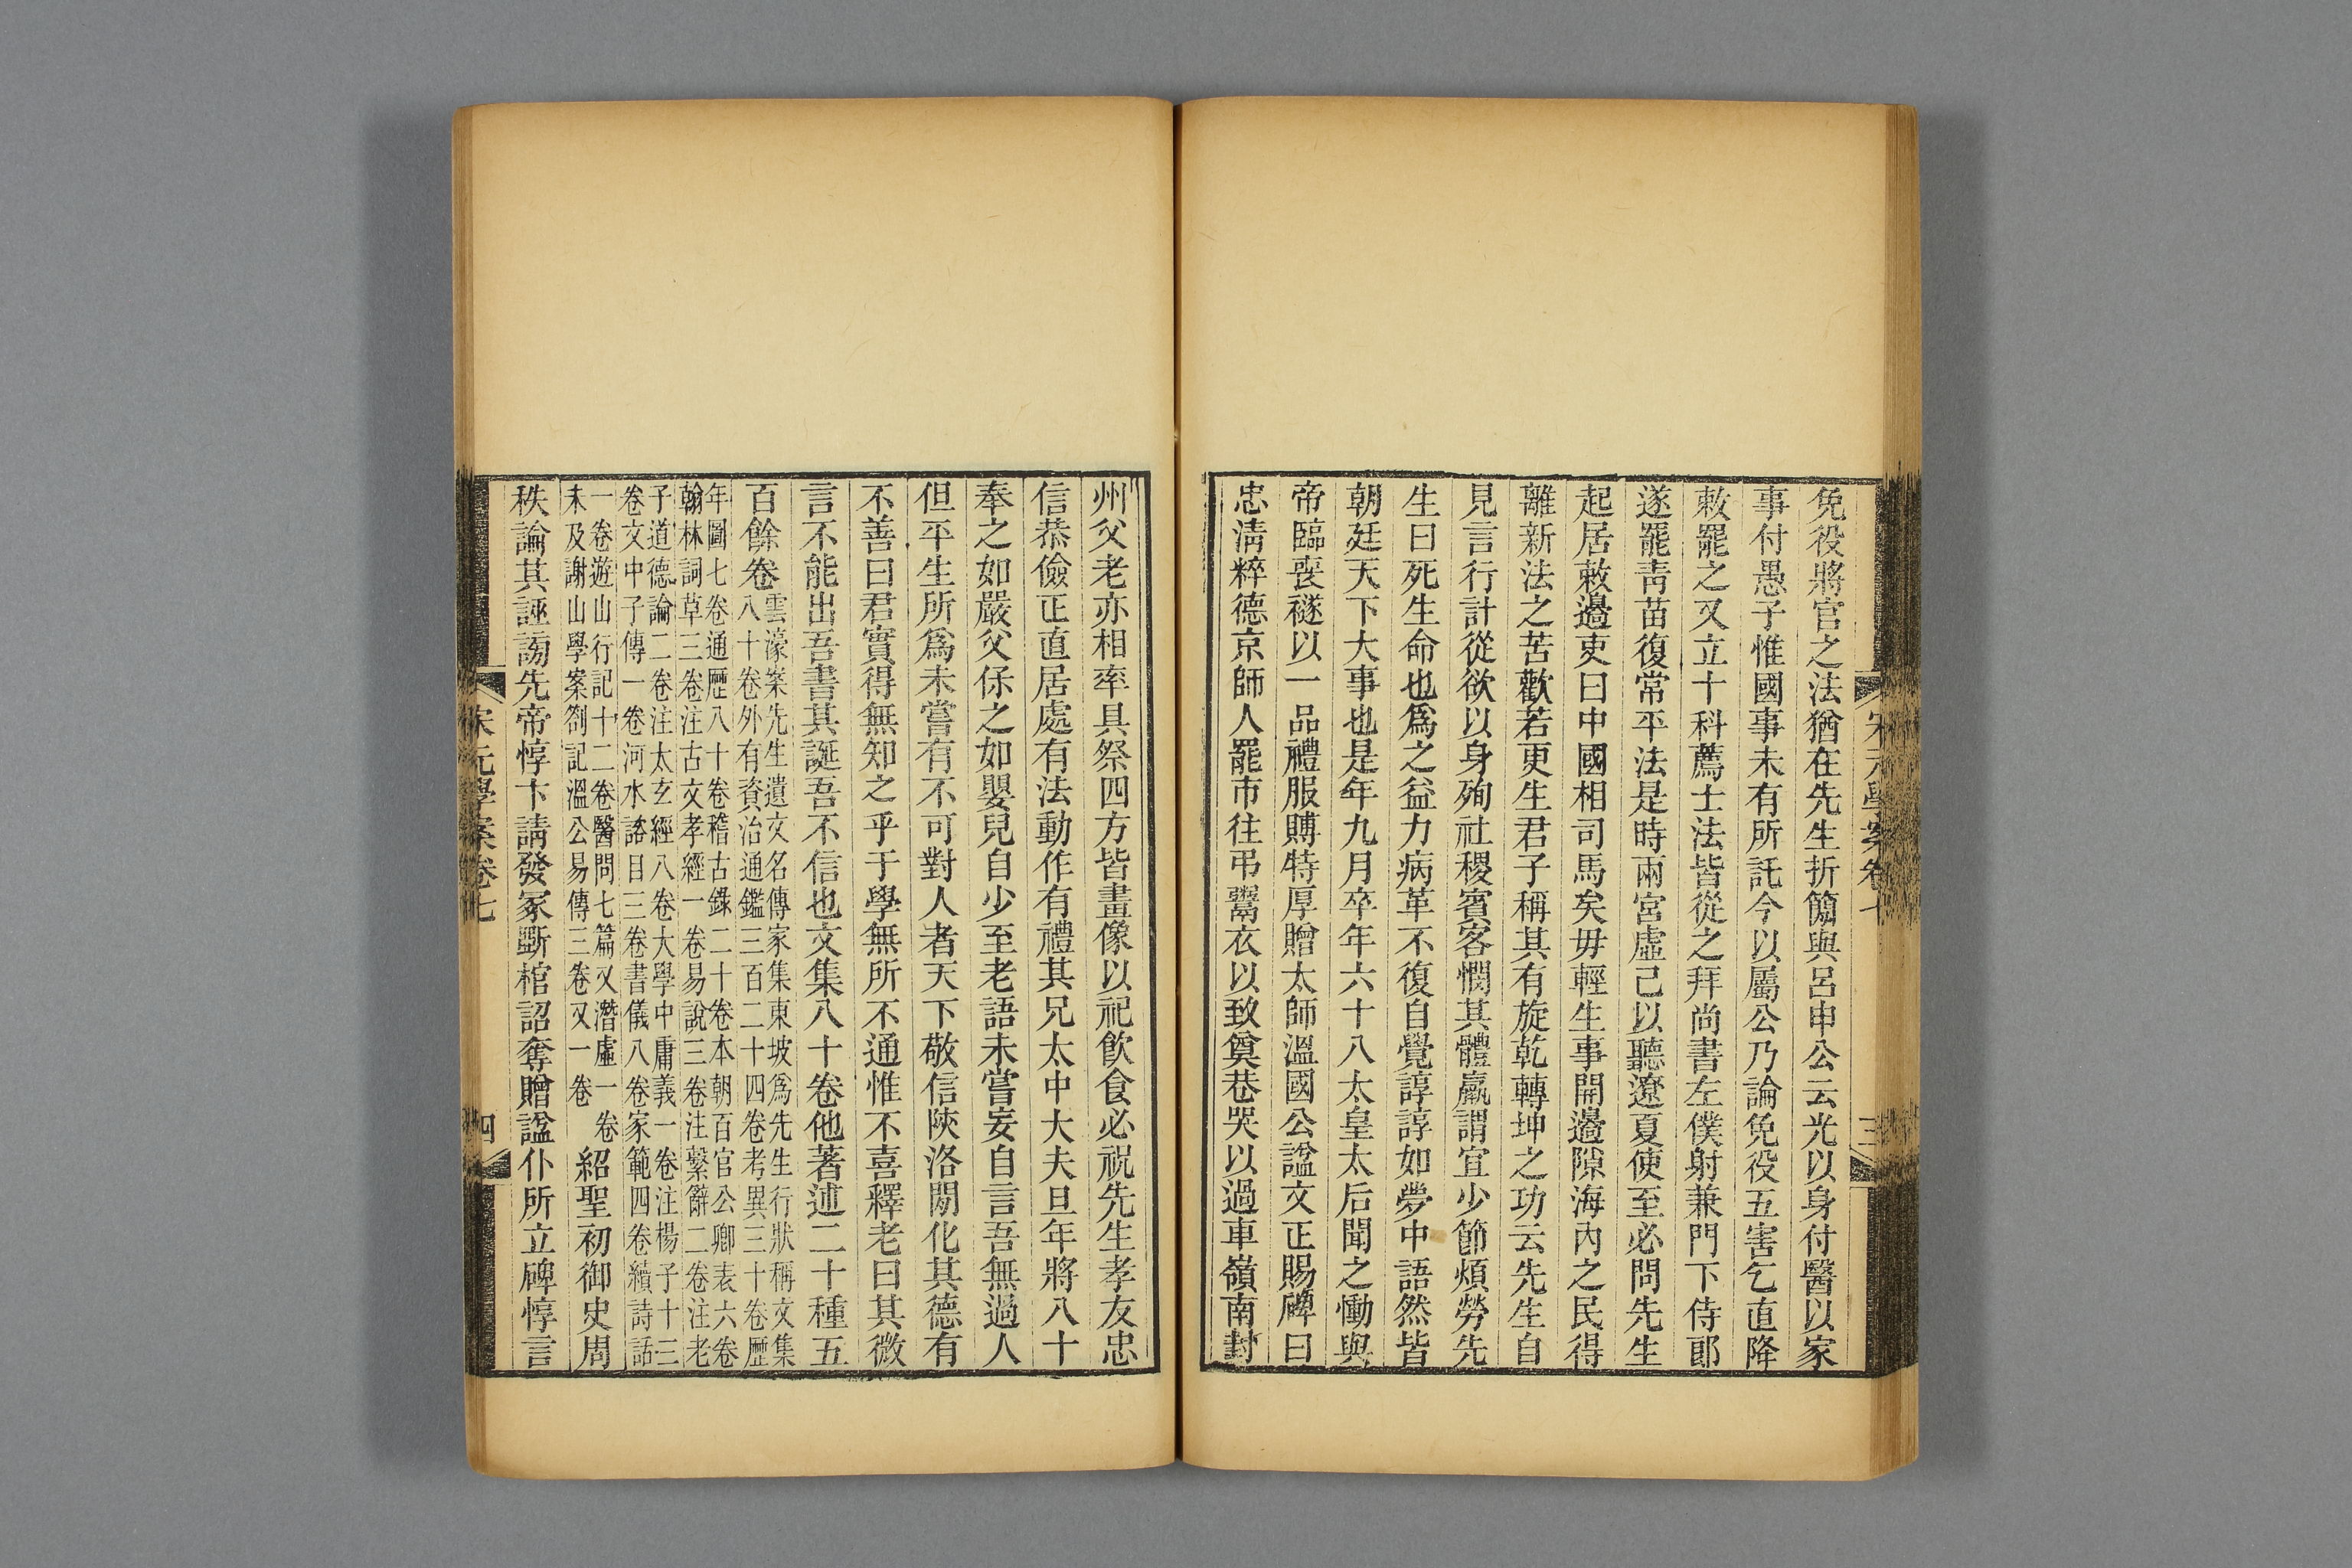 宋元學案卷七
三
免役將官之法猶在先生折簡與呂申公云光以身付醫以家
事付愚子惟國事未有所託今以屬公乃論免役五害乞直降
敕罷之又立十科薦士法皆從之拜尚書左僕射兼門下侍郎
遂罷靑苗復常平法是時兩宮虛己以聽遼夏使至必問先生
起居敕邊吏曰中國相司馬矣毋輕生事開邊隙海內之民得
離新法之苦歡若更生君子稱其有旋乾轉坤之功云先生自
見言行計從欲以身殉社稷賓客憫其體羸謂宜少節煩勞先
生曰死生命也爲之益力病革不復自覺諄諄如夢中語然皆
朝廷天下大事也是年九月卒年六十八太皇太后聞之慟與
帝臨喪襚以一品禮服賻特厚贈太師溫國公諡文正賜碑曰
忠淸粹德京師人罷市往弔鬻衣以致奠巷哭以過車嶺南封
州父老亦相率具祭四方皆畫像以祀飮食必祝先生孝友忠
信恭儉正直居處有法動作有禮其兄太中大夫旦年將八十
奉之如嚴父保之如嬰兒自少至老語未嘗妄自言吾無過人
但平生所爲未嘗有不可對人者天下敬信陝洛閒化其德有
不善曰君實得無知之乎于學無所不通惟不喜釋老曰其微
言不能出吾書其誕吾不信也文集八十卷他著述二十種五
百餘卷
雲濠案先生遺文名傳家集東坡爲先生行狀稱文集
八十卷外有資治通鑑三百二十四卷考異三十卷歷
年圖七卷通歷八十卷稽古錄二十卷本朝百官公卿表六卷
翰林詞草三卷注古文孝經一卷易說三卷注繫辭二卷注老
子道德論二卷注太玄經八卷大學中庸義一卷注楊子十三
卷文中子傳一卷河水諮目三卷書儀八卷家範四卷續詩話
一卷遊山行記十二卷醫問七篇又潛虛一卷
未及謝山學案劄記溫公易傳三卷又一卷
紹聖初御史周
秩論其誣謗先帝惇卞請發冢斲棺詔奪贈諡仆所立碑惇言
宋元學案卷七
四